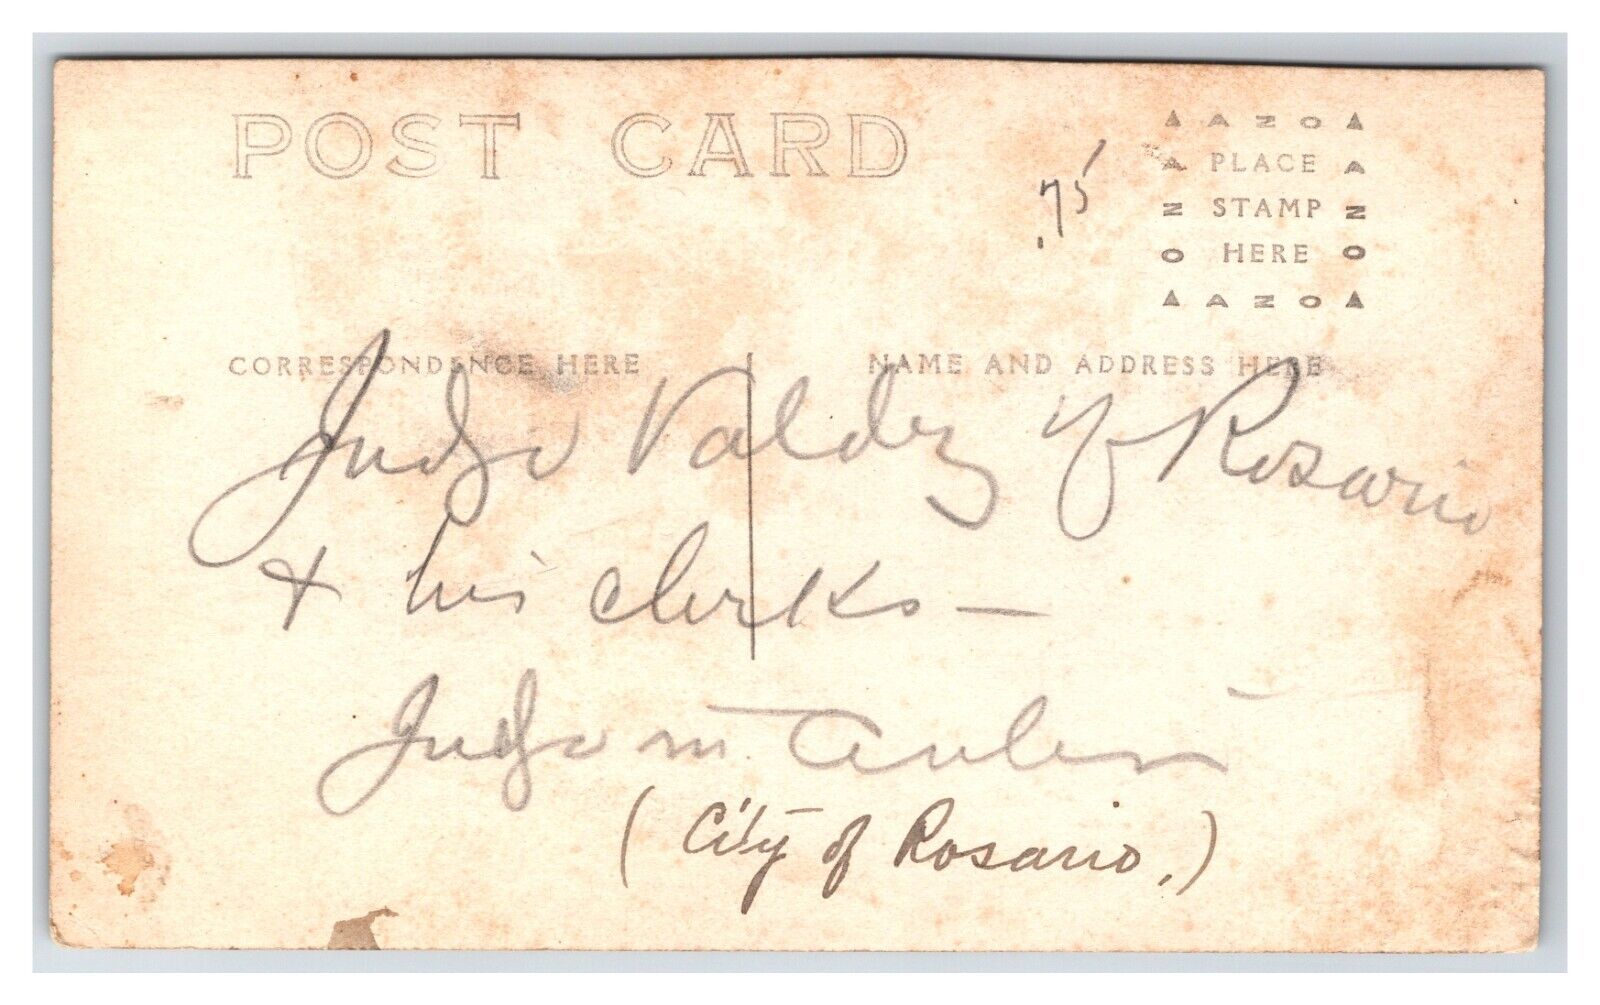 POST CARD
.75
▲ A Z O ▲
A PLACE A
N STAMP N
O HERE O
▲ A Z O ▲
CORRESPONDENCE HERE
NAME AND ADDRESS HERE
Judge Valdez of Rosario
& his clerks —
Judge in
(City of Rosario.)